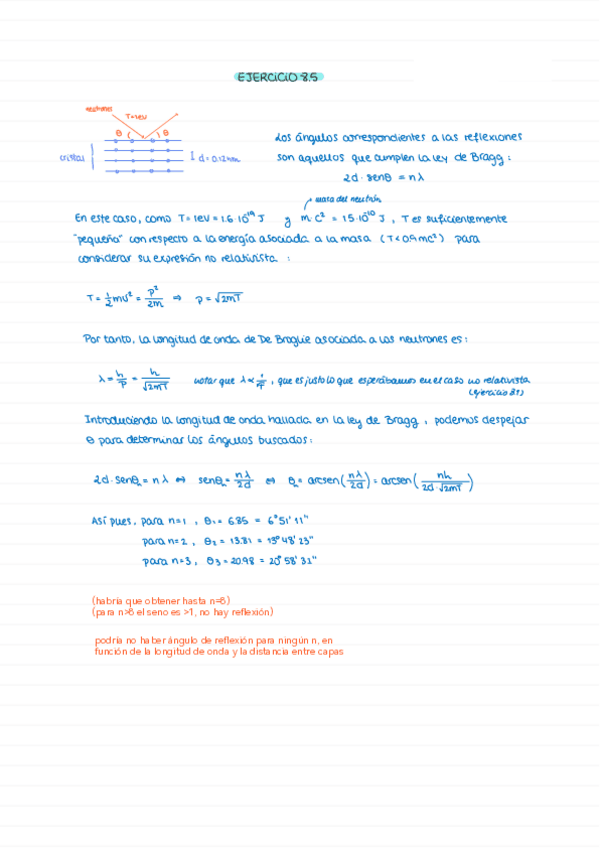 EJERCICIO 8.5
neutrones
T=1eV
θ ( ) θ
cristal
d = 0.12 nm
Los ángulos correspondientes a las reflexiones
son aquellos que cumplen la ley de Bragg:
2d · senθ = nλ
masa del neutrón
En este caso, como T = 1eV = 1.6·10¹⁹ J y m c² = 1.5·10¹⁰ J, T es suficientemente
"pequeña" con respecto a la energía asociada a la masa (T < 0.1 mc²) para
considerar su expresión no relativista:
T = ½mv² = p²/2m ⇒ p = √2mT
Por tanto, la longitud de onda de De Broglie asociada a los neutrones es:
λ = h/p = h/√2mT notar que λ ∝ , que es justo lo que esperábamos en el caso no relativista
(ejercicio 8.1)
Introduciendo la longitud de onda hallada en la ley de Bragg, podemos despejar
θ para determinar los ángulos buscados:
2d·senθₙ = nλ ⇔ senθₙ = nλ/2d ⇔ θₙ = arcsen(nλ/2d) = arcsen(nh/2d·√2mT)
Así pues, para n=1, θ₁ = 6.85 = 6°51'11"
para n=2, θ₂ = 13.81 = 13°48'23"
para n=3, θ₃ = 20.98 = 20°58'31"
(habría que obtener hasta n=8)
(para n>8 el seno es >1, no hay reflexión)
podría no haber ángulo de reflexión para ningún n, en
función de la longitud de onda y la distancia entre capas